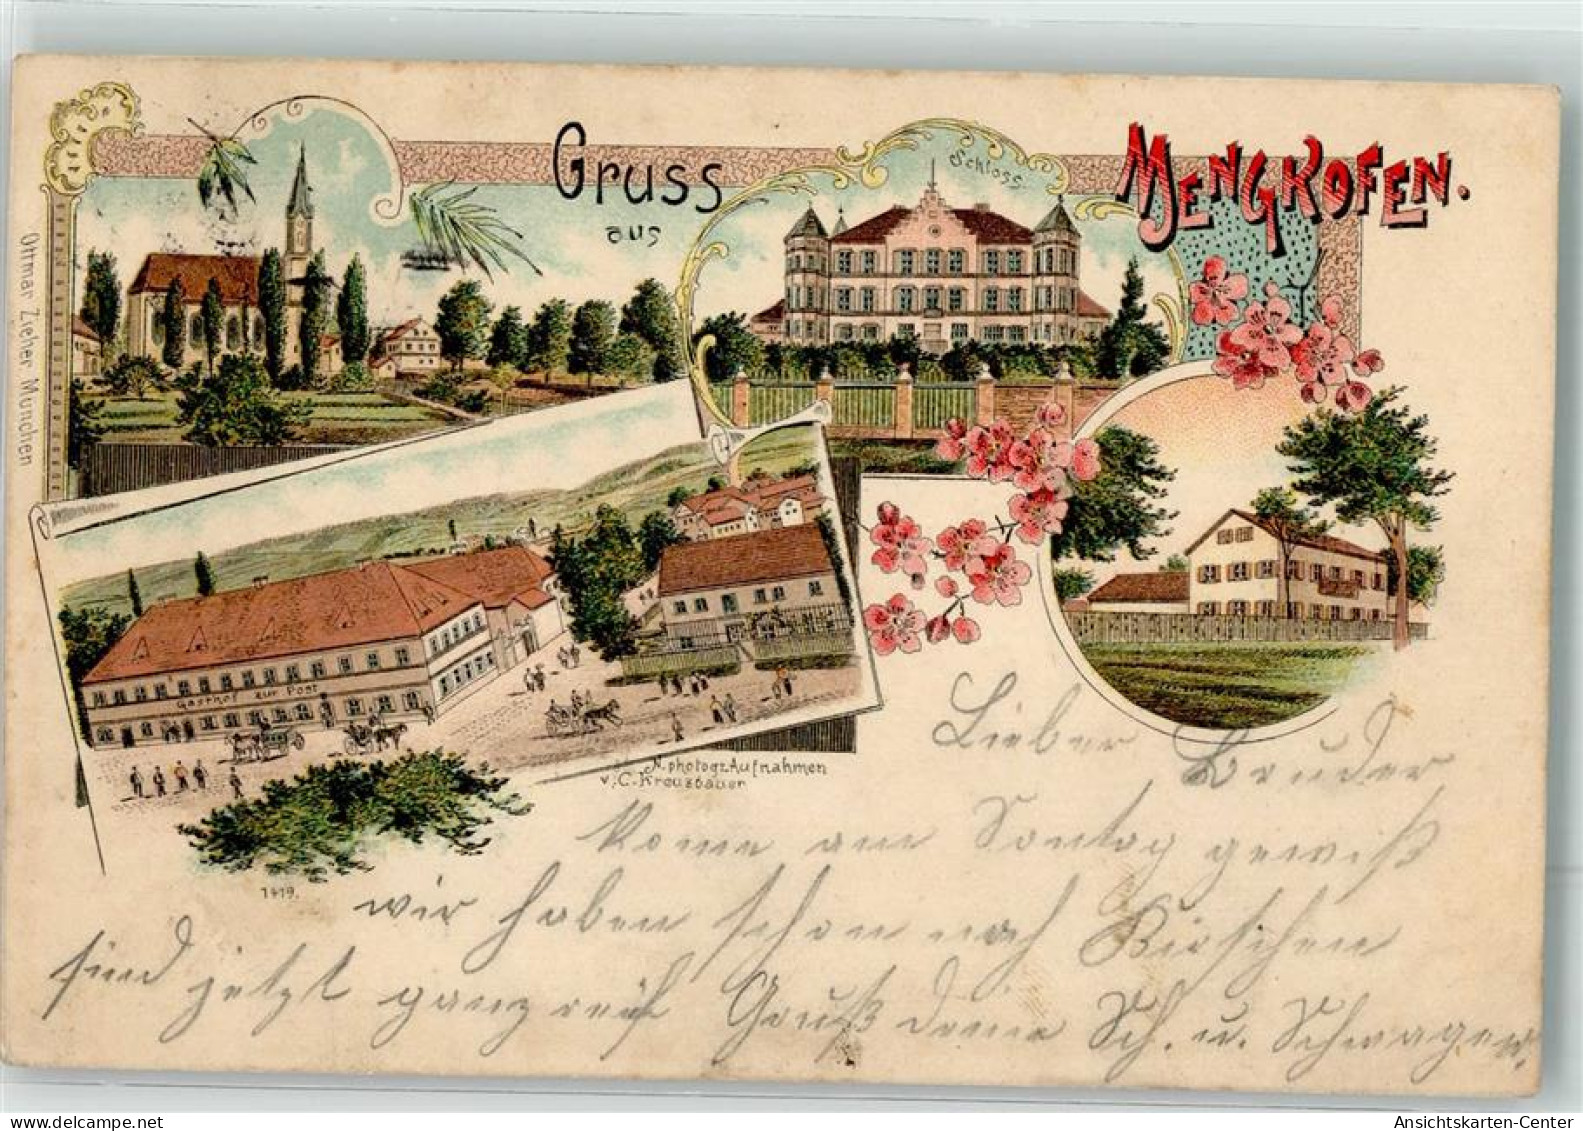 Gruss
aus
Schloss.
MENGKOFEN.
Ottmar Zieher München
Gasthof zur Post
N. photogr. Aufnahmen
v. C. Kreuzbauer
1419.
Lieber Bruder
Kome am Sontag gewiß
wir haben schon noch Kirschen
sind jetzt ganz reif Gruß deine Sch. u. Schwager.
Ansichtskarten-Center